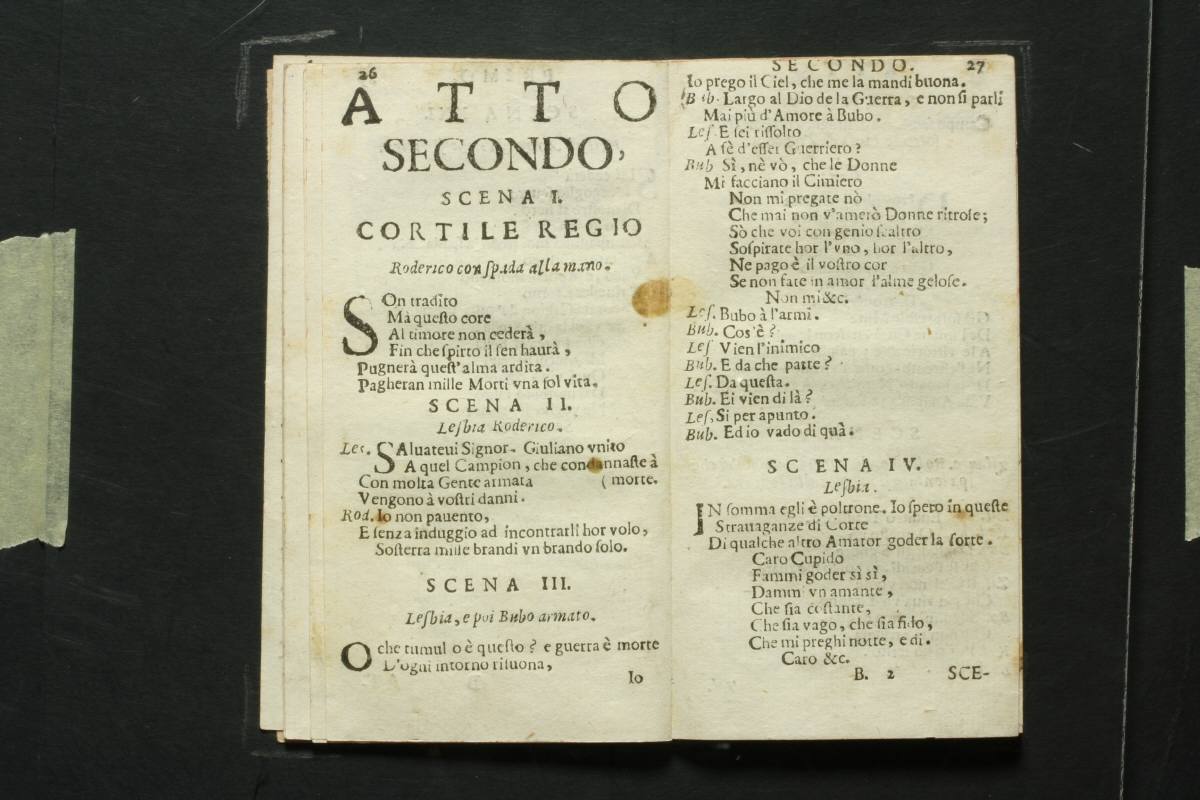 26
ATTO
SECONDO,
SCENA I.
CORTILE REGIO
Roderico con ſpada alla mano.
SOn tradito
Mà queſto core
Al timore non cederà,
Fin che ſpirto il ſen haurà,
Pugnerà queſt'alma ardita.
Pagheran mille Morti vna ſol vita.
SCENA II.
Leſbia Roderico.
Les. SAluateui Signor. Giuliano vnito
A quel Campion, che condannaſte à
Con molta Gente armata (morte.
Vengono à voſtri danni.
Rod. Io non pauento,
E ſenza induggio ad incontrarli hor volo,
Soſterra mille brandi vn brando ſolo.
SCENA III.
Leſbia, e poi Bubo armato.
O che tumul o è queſto? e guerra è morte
D'ogni intorno riſuona,
Io
SECONDO. 27
Io prego il Ciel, che me la mandi buona.
Bub. Largo al Dio de la Guerra, e non ſi parli
Mai più d'Amore à Bubo.
Leſ. E ſei riſſolto
A fè d'eſſer Guerriero?
Bub Sì, nè vò, che le Donne
Mi facciano il Cimiero
Non mi pregate nò
Che mai non v'amerò Donne ritroſe;
Sò che voi con genio ſcaltro
Soſpirate hor l'vno, hor l'altro,
Ne pago è il voſtro cor
Se non fate in amor l'alme geloſe.
Non mi &c.
Leſ. Bubo à l'armi.
Bub. Cos'è?
Leſ Vien l'inimico
Bub. E da che parte?
Leſ. Da queſta.
Bub. Ei vien di là?
Leſ, Si per apunto.
Bub. Ed io vado di quà.
SCENA IV.
Leſbia.
IN ſomma egli è poltrone. Io ſpero in queſte
Strauaganze di Corte
Di qualche altro Amator goder la ſorte.
Caro Cupido
Fammi goder sì sì,
Dammi vn amante,
Che ſia coſtante,
Che ſia vago, che ſia fido,
Che mi preghi notte, e di.
Caro &c.
B. 2 SCE-